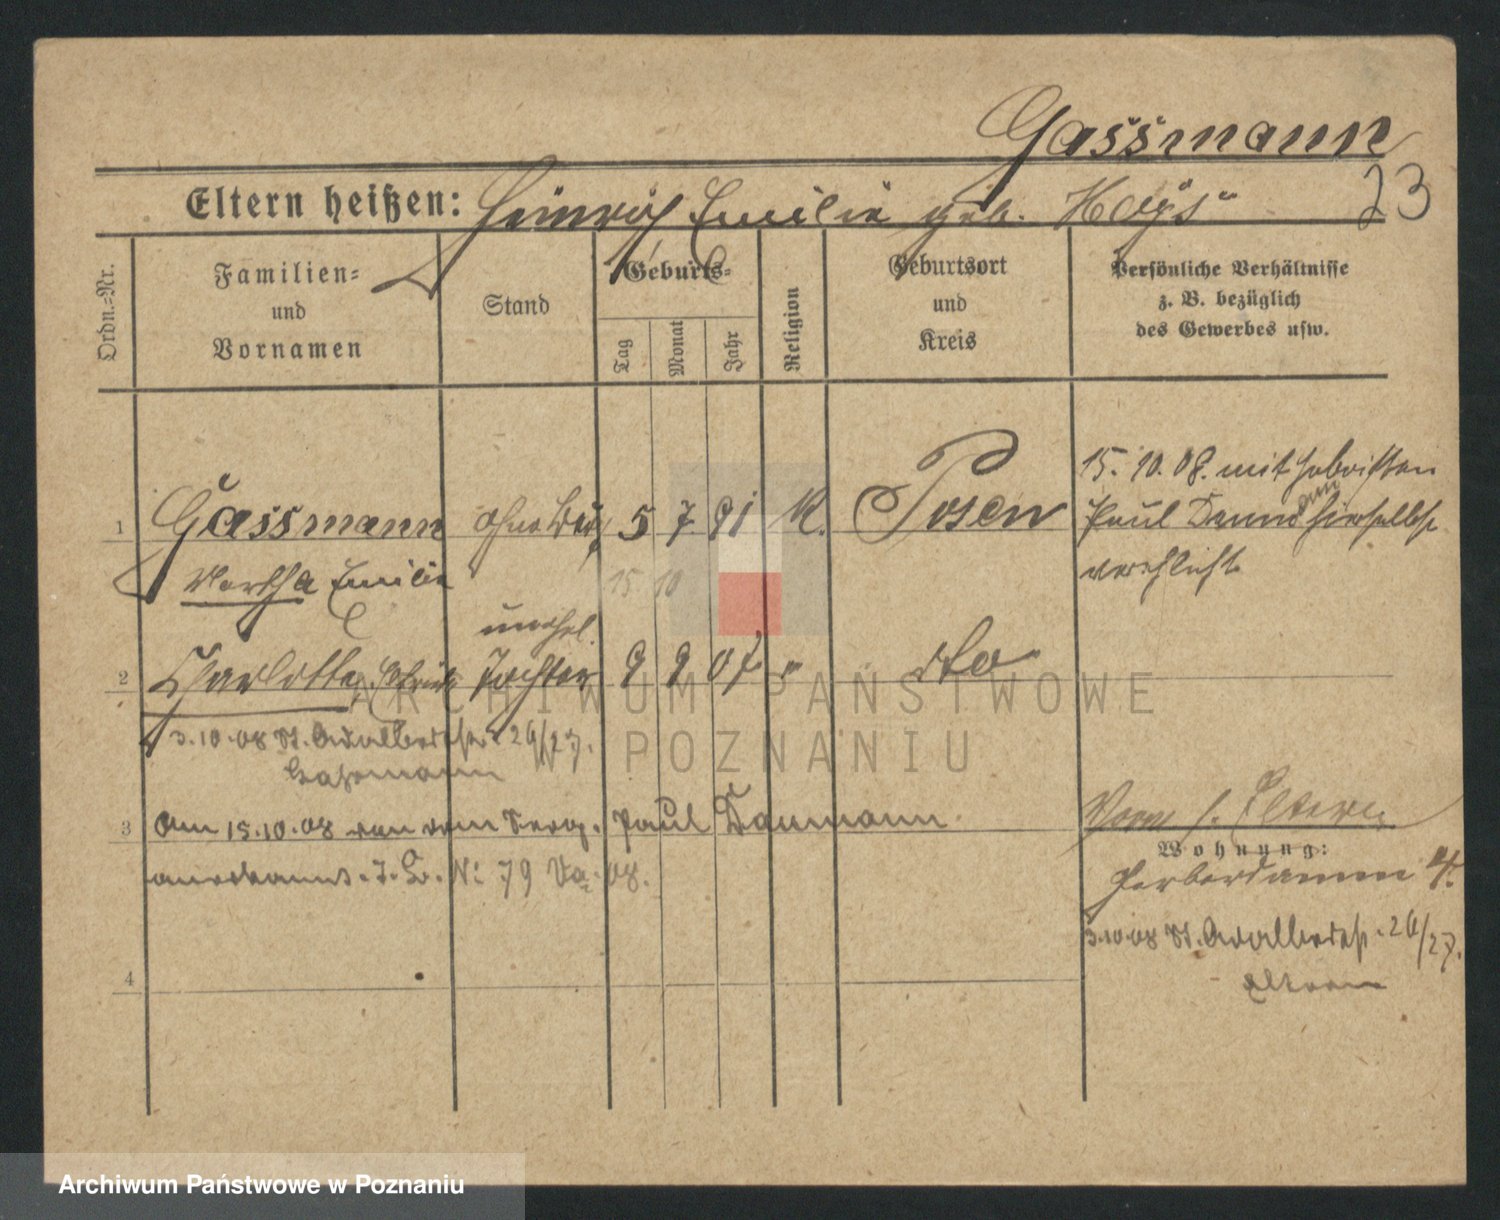 Gassmann
23
Eltern heißen: Heinrich Emilie geb. Hays
Ordn.=Nr.
Familien=
und
Vornamen
Stand
Geburts=
Tag
Monat
Jahr
Religion
Geburtsort
und
Kreis
Persönliche Verhältnisse
z. B. bezüglich
des Gewerbes usw.
15. 10. 08. mit
1 Gassmann 5 7. 91 K. Posen Paul hierselbst
Emilie 15 10 verehlicht
unehel.
2 Charlotte Tochter 9 9 07 " dto
3.10.08 St. Adalbertstr. 26/27.
Gassmann
3 Am 15.10.08 von dem Paul Daumann.
anerkannt. J. No 79 08.
Vorm s. Eltern
Wohnung:
Gerberdamm 4.
3.10.08 St. Adalbertstr. 26/27.
Eltern
4
ARCHIWUM PAŃSTWOWE
W POZNANIU
Archiwum Państwowe w Poznaniu